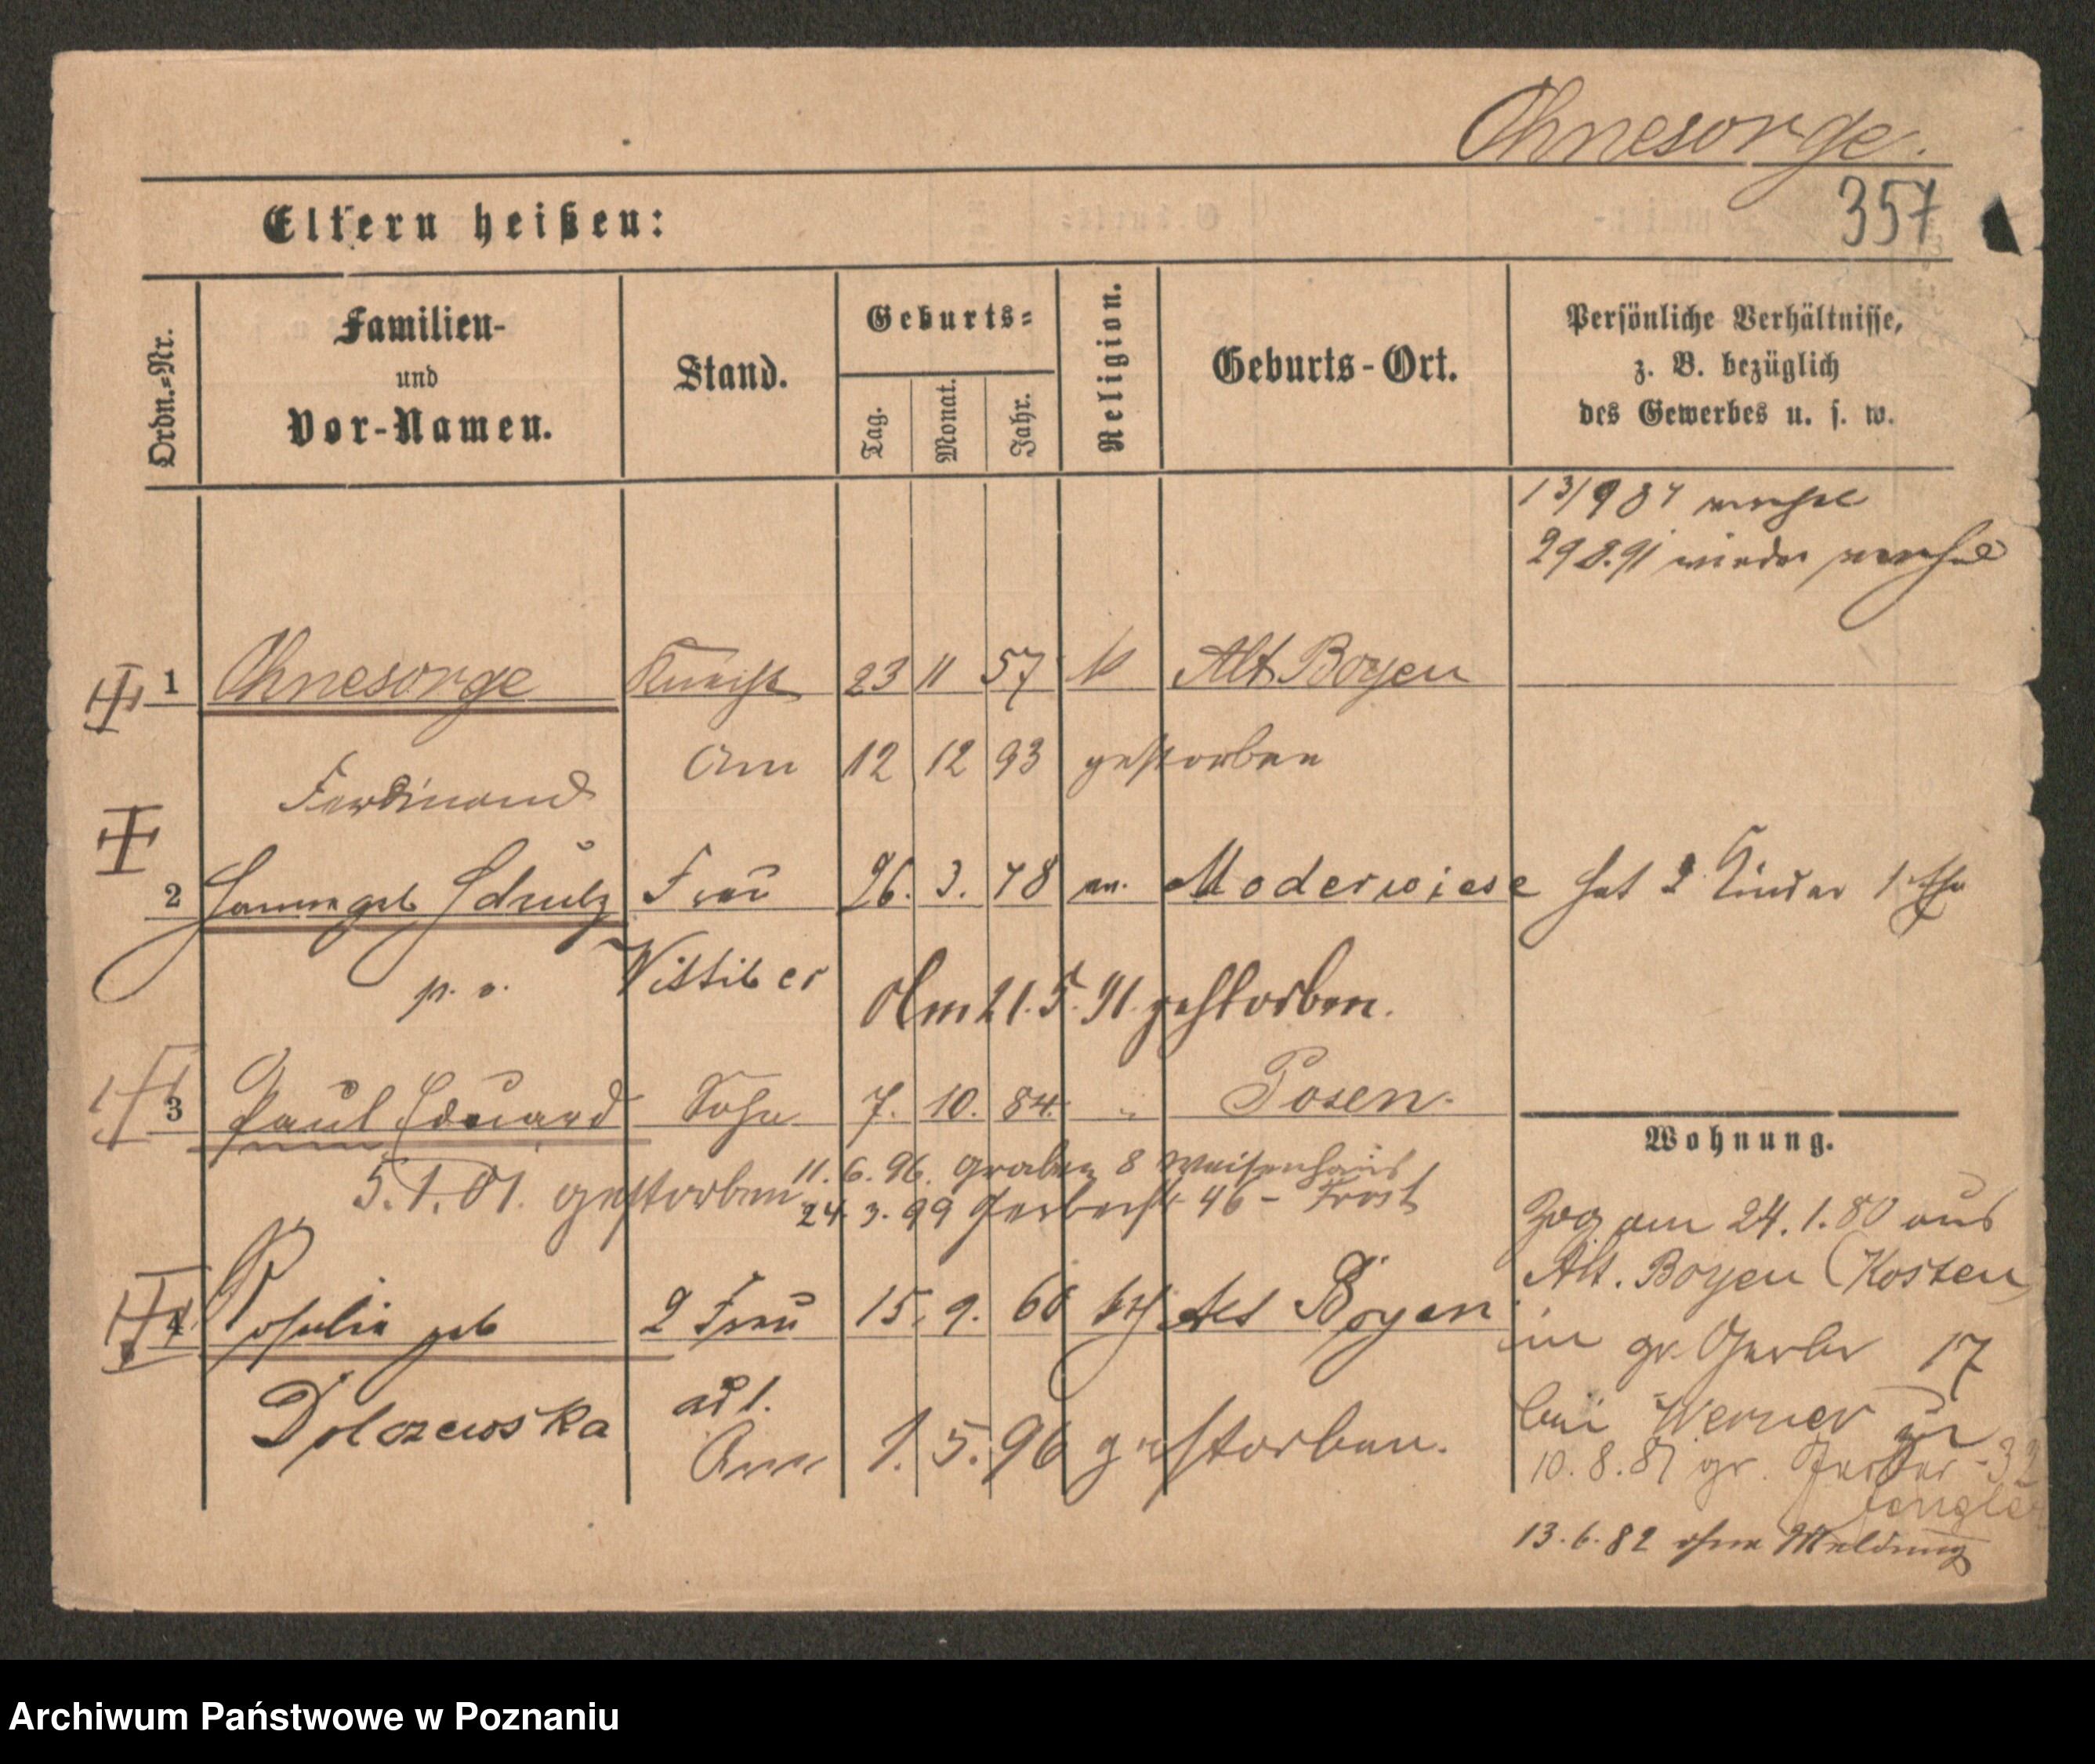 Ohnesorge.
357
Eltern heißen:
Ordn.-Nr.
Familien-
und
Vor-Namen.
Stand.
Geburts-
Tag.
Monat.
Jahr.
Religion.
Geburts-Ort.
Persönliche Verhältnisse,
z. B. bezüglich
des Gewerbes u. s. w.
13/9 84
29 8. 91 wieder
1 Ohnesorge Knecht 23 11 57 Alt Boyen
Am 12 12 93 gestorben
Ferdinand
2 geb Schulz Frau 26. 3. 48 ev. Moderwiese hat 2 Kinder 1
p. o.
Am 21. 5. 91. gestorben.
3 Paul Eduard Sohn 7. 10. 84. " Posen.
5. 1. 01. gestorben
11. 6. 96. Graben 8 Waisenhaus
24. 3. 99 Gerberst 46 - Frost
4 Rosalie geb 2 Frau 15. 9. 60 kth Alt Boyen
Dolczewska
Am 1. 5. 96 gestorben.
Wohnung.
Zog am 24. 1. 80 aus
Alt. Boyen (Kosten)
in gr. Gerber 17
bei Werner zu
10. 8. 81 gr. Gerber - 32
13. 6. 82 ohne Meldung
Archiwum Państwowe w Poznaniu